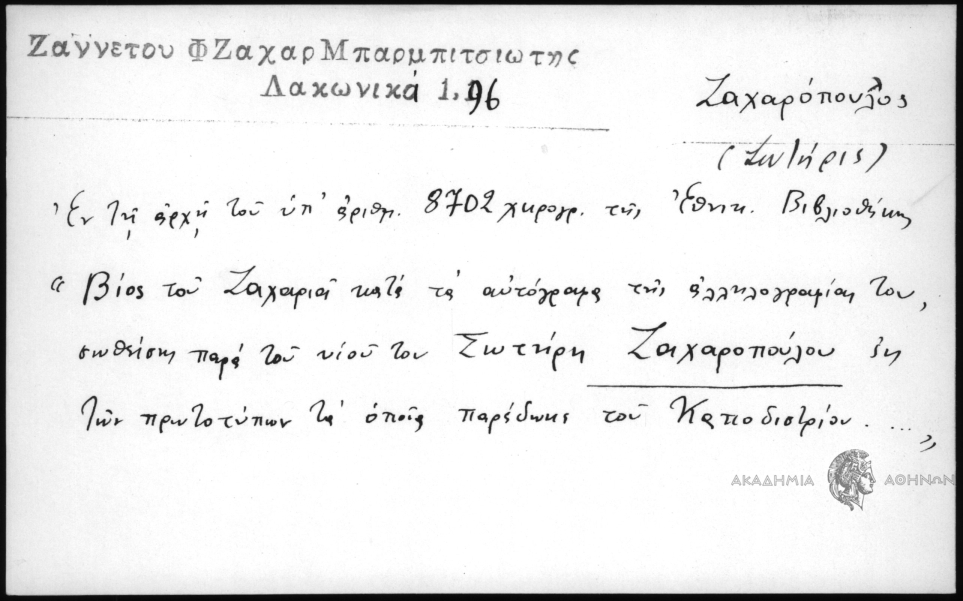 Ζαννετου Φ Ζαχαρ Μπαρμπιτσιωτης
Λακωνικά 1. 96
Ζαχαρόπουλος
(Σωτήρις)
Ἐν τῇ ἀρχῇ τοῦ ὑπ' ἀριθμ. 8702 χειρογρ. τῆς Ἐθνικ. Βιβλιοθήκης
" Βίος τοῦ Ζαχαριᾶ κατὰ τὰ αὐτόγραφα τῆς ἀλληλογραφίας του,
σωθείσης παρὰ τοῦ υἱοῦ του Σωτήρη Ζαχαροπούλου ἐκ
τῶν πρωτοτύπων τὰ ὁποῖα παρέδωκε τοῦ Καποδιστρίου. ... "
ΑΚΑΔΗΜΙΑ ΑΘΗΝΩΝ